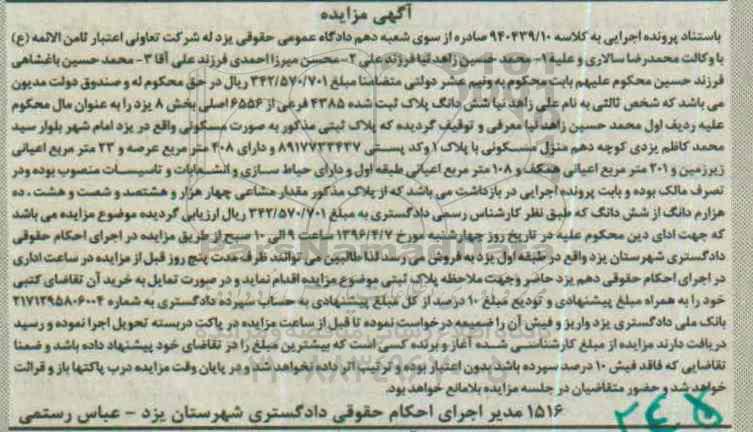 آگهی مزایده
باستناد پرونده اجرایی به کلاسه ۹۴۰۴۳۹/۱۰ صادره از سوی شعبه دهم دادگاه عمومی حقوقی یزد له شرکت تعاونی اعتبار ثامن الائمه (ع)
با وکالت محمدرضا سالاری و علیه ۱- محمد حسین زاهد نیا فرزند علی ۲- محسن میرزا احمدی فرزند علی آقا ۳- محمد حسین باغشاهی
فرزند حسین محکوم علیهم بابت محکوم به ونیم عشر دولتی متضامنا مبلغ ۳۴۲/۵۷۰/۷۰۱ ریال در حق محکوم له و صندوق دولت مدیون
می باشد که شخص ثالثی به نام علی زاهد نیا شش دانگ پلاک ثبت شده ۴۳۸۵ فرعی از ۶۵۵۶ اصلی بخش ۸ یزد را به عنوان مال محکوم
علیه ردیف اول محمد حسین زاهد نیا معرفی و توقیف گردیده که پلاک ثبتی مذکور به صورت مسکونی واقع در یزد امام شهر بلوار سید
محمد کاظم یزدی کوچه دهم منزل مسکونی با پلاک ۱ وکد پستی ۸۹۱۷۷۳۳۴۳۷ و دارای ۴۰۸ متر مربع عرصه و ۲۳ متر مربع اعیانی
زیرزمین و ۲۰۱ متر مربع اعیانی همکف و ۱۰۸ متر مربع اعیانی طبقه اول و دارای حیاط سازی و انشعابات و تاسیسات منصوب بوده ودر
تصرف مالک بوده و بابت پرونده اجرایی در بازداشت می باشد که از پلاک مذکور مقدار مشاعی چهار هزار و هشتصد و شصت و هشت ، ده
هزارم دانگ از شش دانگ که طبق نظر کارشناس رسمی دادگستری به مبلغ ۳۴۲/۵۷۰/۷۰۱ ریال ارزیابی گردیده موضوع مزایده می باشد
که جهت ادای دین محکوم علیه در تاریخ روز چهارشنبه مورخ ۱۳۹۶/۴/۷ ساعت ۹ الی ۱۰ صبح از طریق مزایده در اجرای احکام حقوقی
دادگستری شهرستان یزد واقع در طبقه اول یزد به فروش می رسد لذا طالبین می توانند ظرف مدت پنج روز قبل از مزایده در ساعت اداری
در اجرای احکام حقوقی دهم یزد حاضر وجهت ملاحظه پلاک ثبتی موضوع مزایده اقدام نماید و در صورت تمایل به خرید آن تقاضای کتبی
خود را به همراه مبلغ پیشنهادی و تودیع مبلغ ۱۰ درصد از کل مبلغ پیشنهادی به حساب سپرده دادگستری به شماره ۲۱۷۱۲۹۵۸۰۶۰۰۴
بانک ملی دادگستری یزد واریز و فیش آن را ضمیمه درخواست نموده تا قبل از ساعت مزایده در پاکت دربسته تحویل اجرا نموده و رسید
دریافت دارند مزایده از مبلغ کارشناسی شده آغاز و برنده کسی است که بیشترین مبلغ را در تقاضای خود پیشنهاد داده باشد و ضمنا
تقاضایی که فاقد فیش ۱۰ درصد سپرده باشد بدون اعتبار بوده و ترتیب اثر داده نخواهد شد و در پایان وقت مزایده درب پاکتها باز و قرائت
خواهد شد و حضور متقاضیان در جلسه مزایده بلامانع خواهد بود.
۱۵۱۶ مدیر اجرای احکام حقوقی دادگستری شهرستان یزد - عباس رستمی